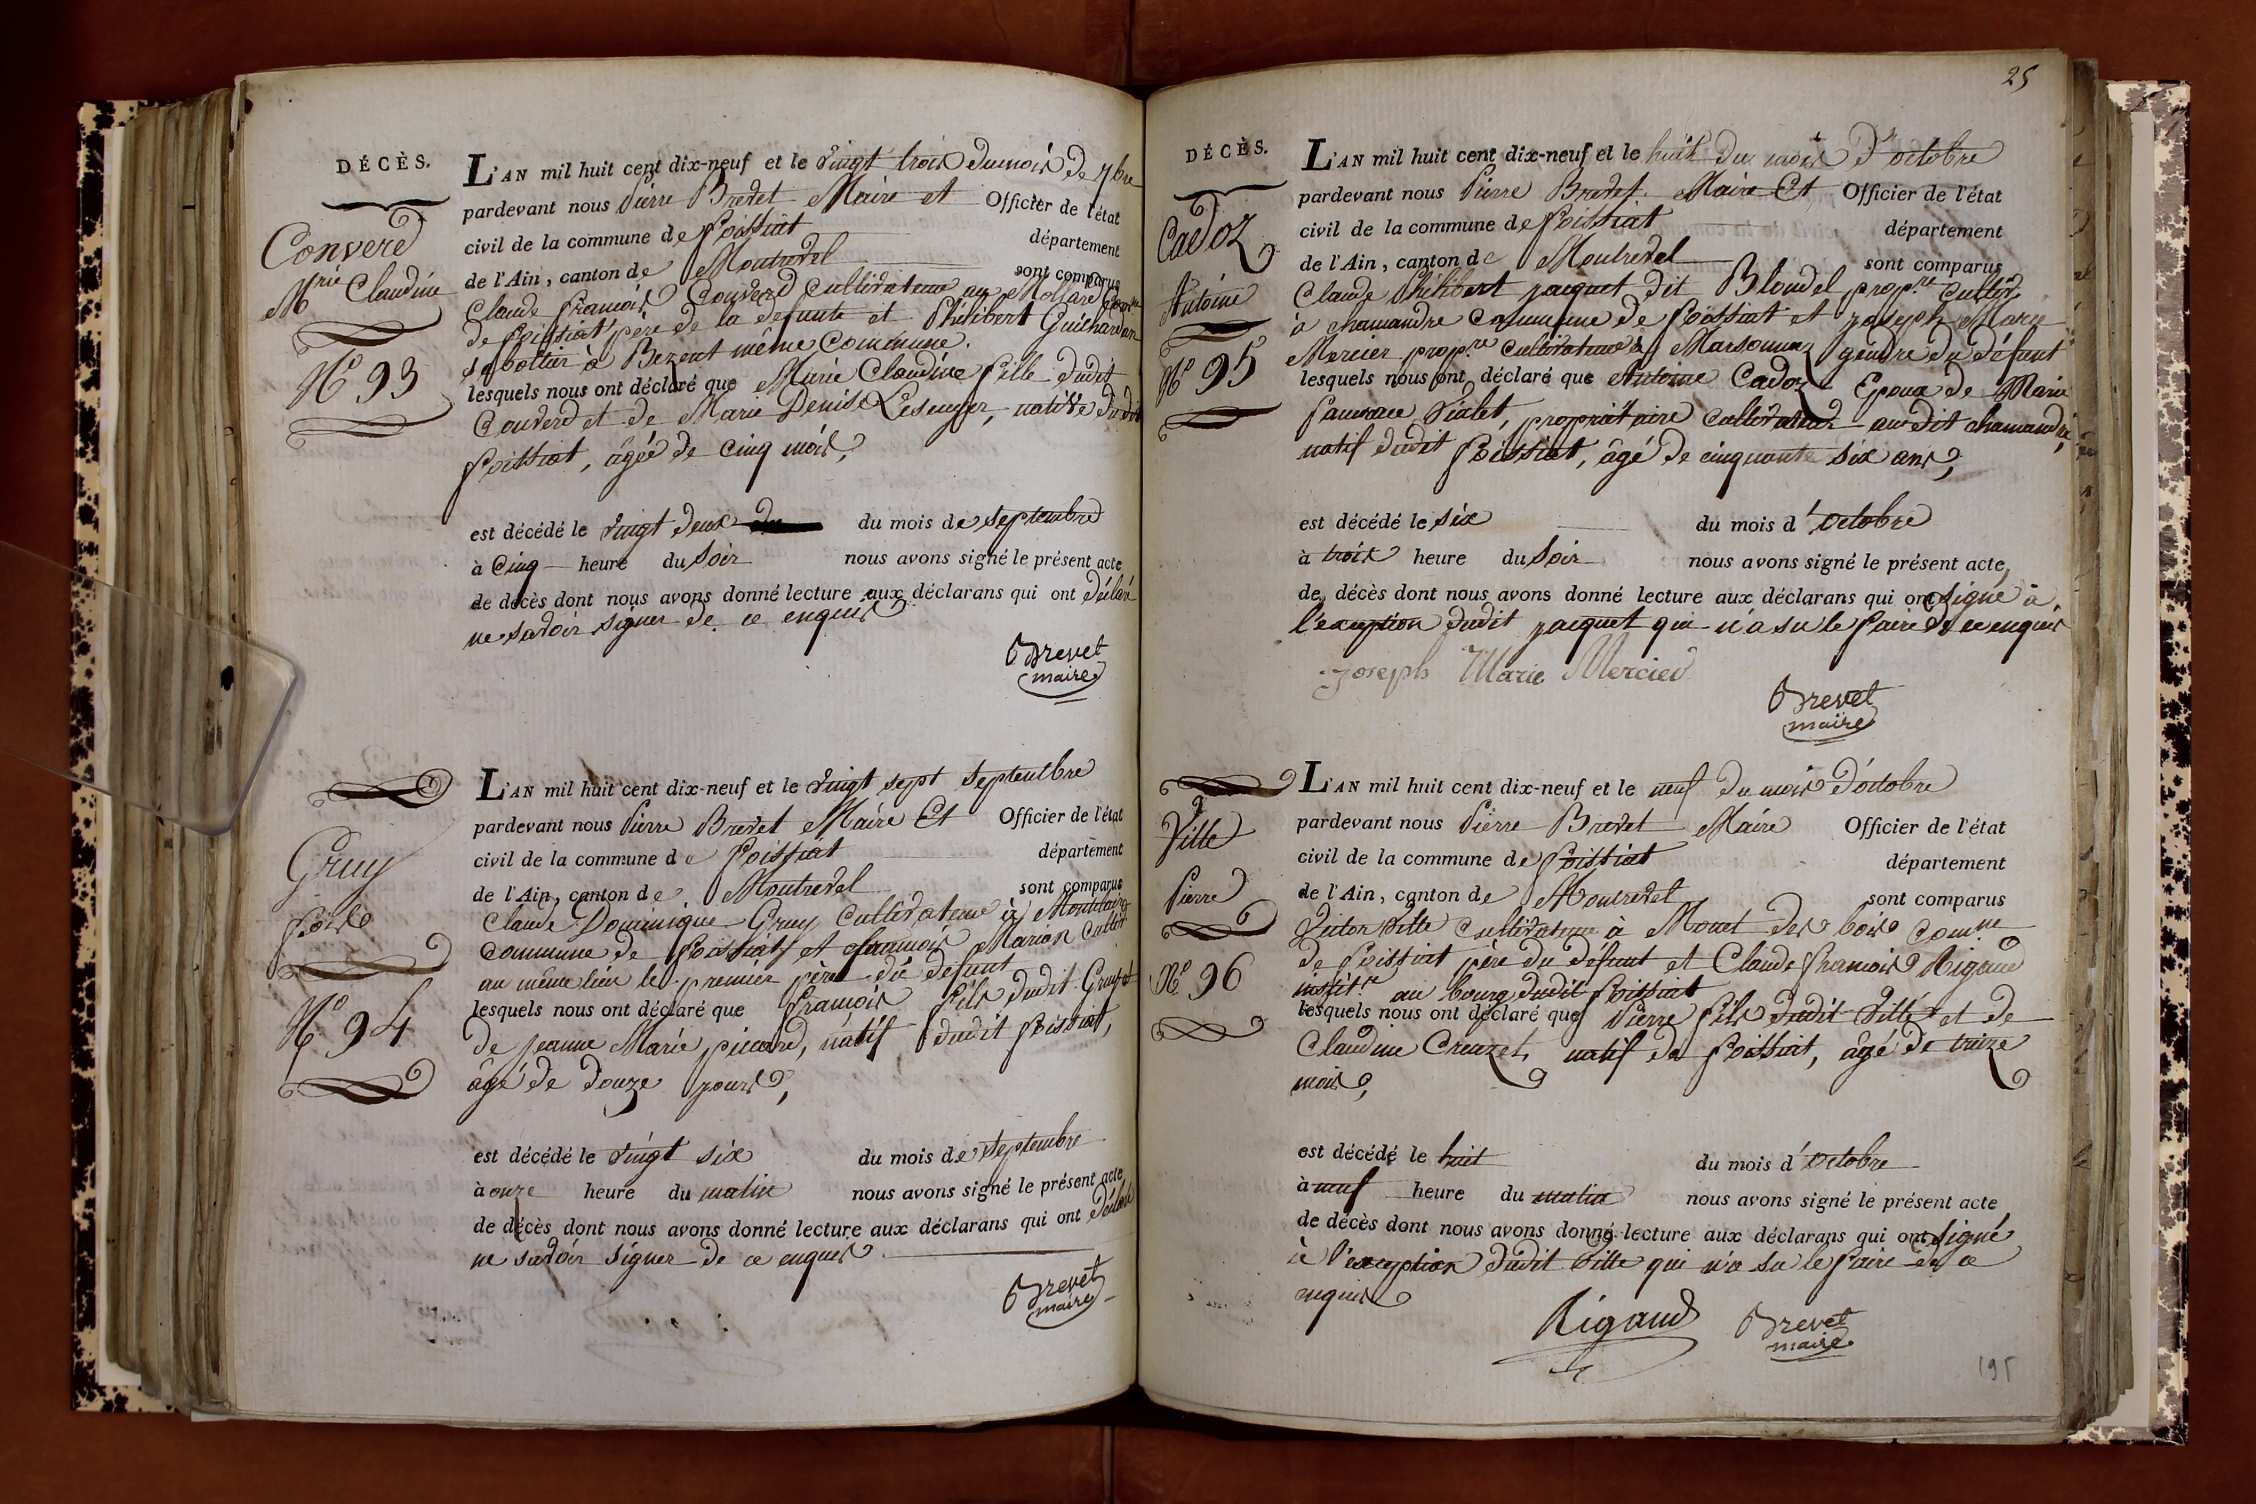 DÉCÈS.
Converd
Mrie Claudine
No 93
L'AN mil huit cent dix-neuf et le vingt trois du mois de 7bre
pardevant nous Pierre Brevet Maire et Officier de l'état
civil de la commune de Foissiat département
de l'Ain, canton de Montrevel sont comparus
Claude François Converd Cultivateur au Mollard Comne
de Foissiat père de la defunte et Philibert Guichardon
sabottier à Bezent même Commune.
lesquels nous ont déclaré que Marie Claudine fille dudit
Converd et de Marie Denise Lesenger, native dudit
Foissiat, âgée de cinq mois,
est décédé le vingt deux du mois de septembre
à Cinq heure du soir nous avons signé le présent acte
de décès dont nous avons donné lecture aux déclarans qui ont déclaré
ne savoir signer de ce enquis
Brevet
maire
Gruy
fois
No 94
L'AN mil huit cent dix-neuf et le vingt sept septembre
pardevant nous Pierre Brevet Maire Et Officier de l'état
civil de la commune de Foissiat département
de l'Ain, canton de Montrevel sont comparus
Claude Dominique Gruy Cultivateur à
commune de Foissiat et françois Marion Cultivr
au même lieu le premier père du defunt
lesquels nous ont déclaré que François fils dudit Gruy et
de Jeanne Marie picard, natif dudit foissiat,
âgé de douze jours,
est décédé le vingt six du mois de septembre
à onze heure du matin nous avons signé le présent acte
de décès dont nous avons donné lecture aux déclarans qui ont déclaré
ne savoir signer de ce enquis
Brevet
maire
25
DÉCÈS.
Cadoz
Antoine
No 95
L'AN mil huit cent dix-neuf et le huit du mois d'octobre
pardevant nous Pierre Brevet Maire Et Officier de l'état
civil de la commune de Foissiat département
de l'Ain, canton de Montrevel sont comparus
Claude Philibert jacquet dit Blondel propre Cultivr
à chamandre Commune de Foissiat et joseph Marie
Mercier propre cultivateur à Marsonnaz gendre du défunt
lesquels nous ont déclaré que Antoine Cadoz Epoux de Marie
Vialet, propriétaire cultivateur audit chamandre,
natif dudit Foissiat, âgé de cinquante six ans,
est décédé le six du mois d'octobre
à trois heure du soir nous avons signé le présent acte
de décès dont nous avons donné lecture aux déclarans qui ont signé à
l'exception dudit jacquet qui n'a su le faire de ce enquis
Joseph Marie Mercier
Brevet
maire
Ville
Pierre
No 96
L'AN mil huit cent dix-neuf et le neuf du mois d'octobre
pardevant nous Pierre Brevet Maire Officier de l'état
civil de la commune de Foissiat département
de l'Ain, canton de Montrevel sont comparus
Victor Ville cultivateur à Monet des bois Comne
de Foissiat père du défunt et Claude françois Rigaud
institr au bourg dudit Foissiat
lesquels nous ont déclaré que Pierre fils dudit Ville et de
Claudine Creuzet, natif de Foissiat, âgé de treize
mois,
est décédé le huit du mois d'octobre
à neuf heure du matin nous avons signé le présent acte
de décès dont nous avons donné lecture aux déclarans qui ont signé
à l'exception dudit Ville qui n'a su le faire de ce
enquis
Rigaud
Brevet
maire
195